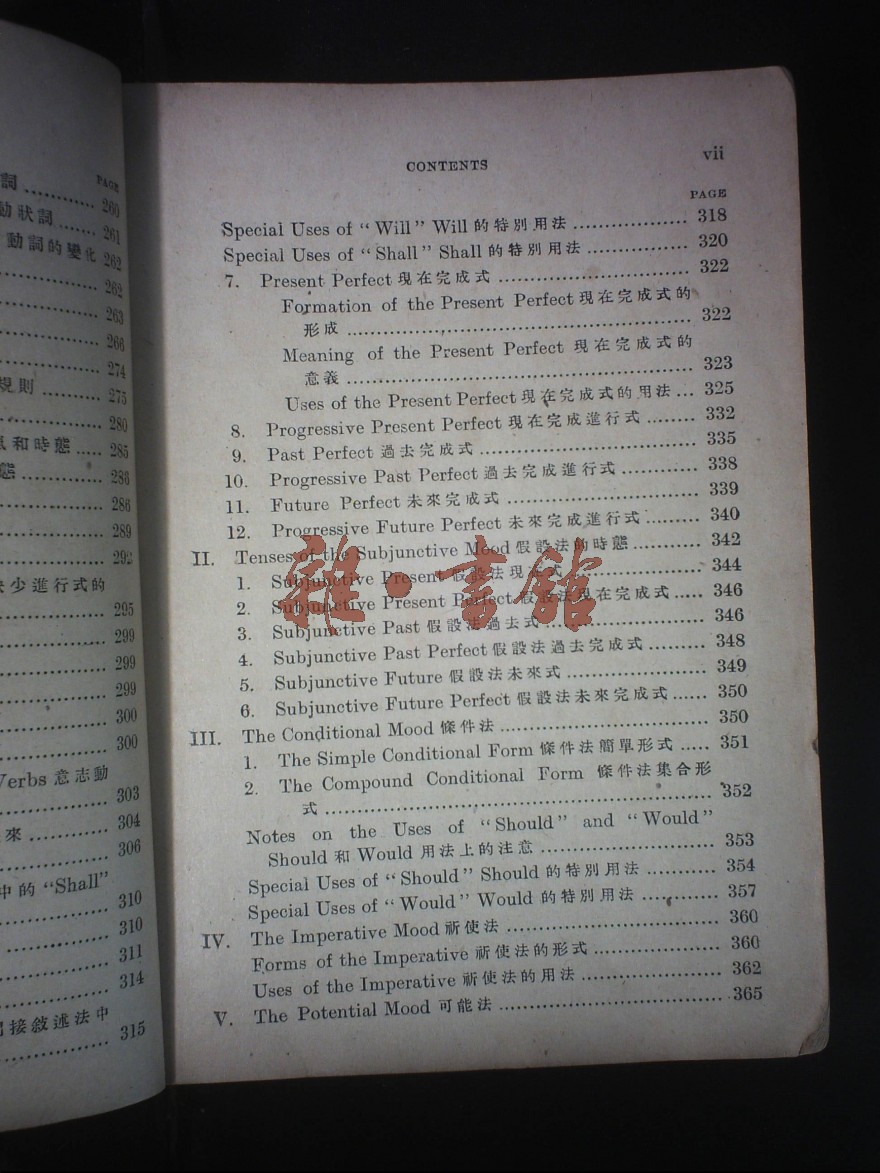 PAGE
詞 .......... 260
動狀詞 ...... 261
動詞的變化 262
.......... 262
.......... 263
.......... 266
.......... 274
規則 ........ 275
.......... 280
和時態 ..... 285
態 .......... 286
.......... 286
.......... 289
.......... 292
少進行式的
.......... 295
.......... 299
.......... 299
.......... 299
.......... 300
.......... 300
Verbs 意志動
.......... 303
來 .......... 304
.......... 306
中的 "Shall"
.......... 310
.......... 310
.......... 311
.......... 314
接敘述法中
.......... 315
CONTENTS vii
PAGE
Special Uses of "Will" Will 的特別用法 .......... 318
Special Uses of "Shall" Shall 的特別用法 .......... 320
7. Present Perfect 現在完成式 .......... 322
Formation of the Present Perfect 現在完成式的
形成 .......... 322
Meaning of the Present Perfect 現在完成式的
意義 .......... 323
Uses of the Present Perfect 現在完成式的用法 ... 325
8. Progressive Present Perfect 現在完成進行式 ........ 332
9. Past Perfect 過去完成式 .......... 335
10. Progressive Past Perfect 過去完成進行式 .......... 338
11. Future Perfect 未來完成式 .......... 339
12. Progressive Future Perfect 未來完成進行式 ......... 340
II. Tenses of the Subjunctive Mood 假設法的時態 .......... 342
1. Subjunctive Present 假設法現在式 .......... 344
2. Subjunctive Present Perfect 假設法現在完成式 ..... 346
3. Subjunctive Past 假設法過去式 .......... 346
4. Subjunctive Past Perfect 假設法過去完成式 ......... 348
5. Subjunctive Future 假設法未來式 .......... 349
6. Subjunctive Future Perfect 假設法未來完成式 ...... 350
III. The Conditional Mood 條件法 .......... 350
1. The Simple Conditional Form 條件法簡單形式 ..... 351
2. The Compound Conditional Form 條件法集合形
式 .......... 352
Notes on the Uses of "Should" and "Would"
Should 和 Would 用法上的注意 .......... 353
Special Uses of "Should" Should 的特別用法 .......... 354
Special Uses of "Would" Would 的特別用法 .......... 357
IV. The Imperative Mood 祈使法 .......... 360
Forms of the Imperative 祈使法的形式 .......... 360
Uses of the Imperative 祈使法的用法 .......... 362
V. The Potential Mood 可能法 .......... 365
雜·書館